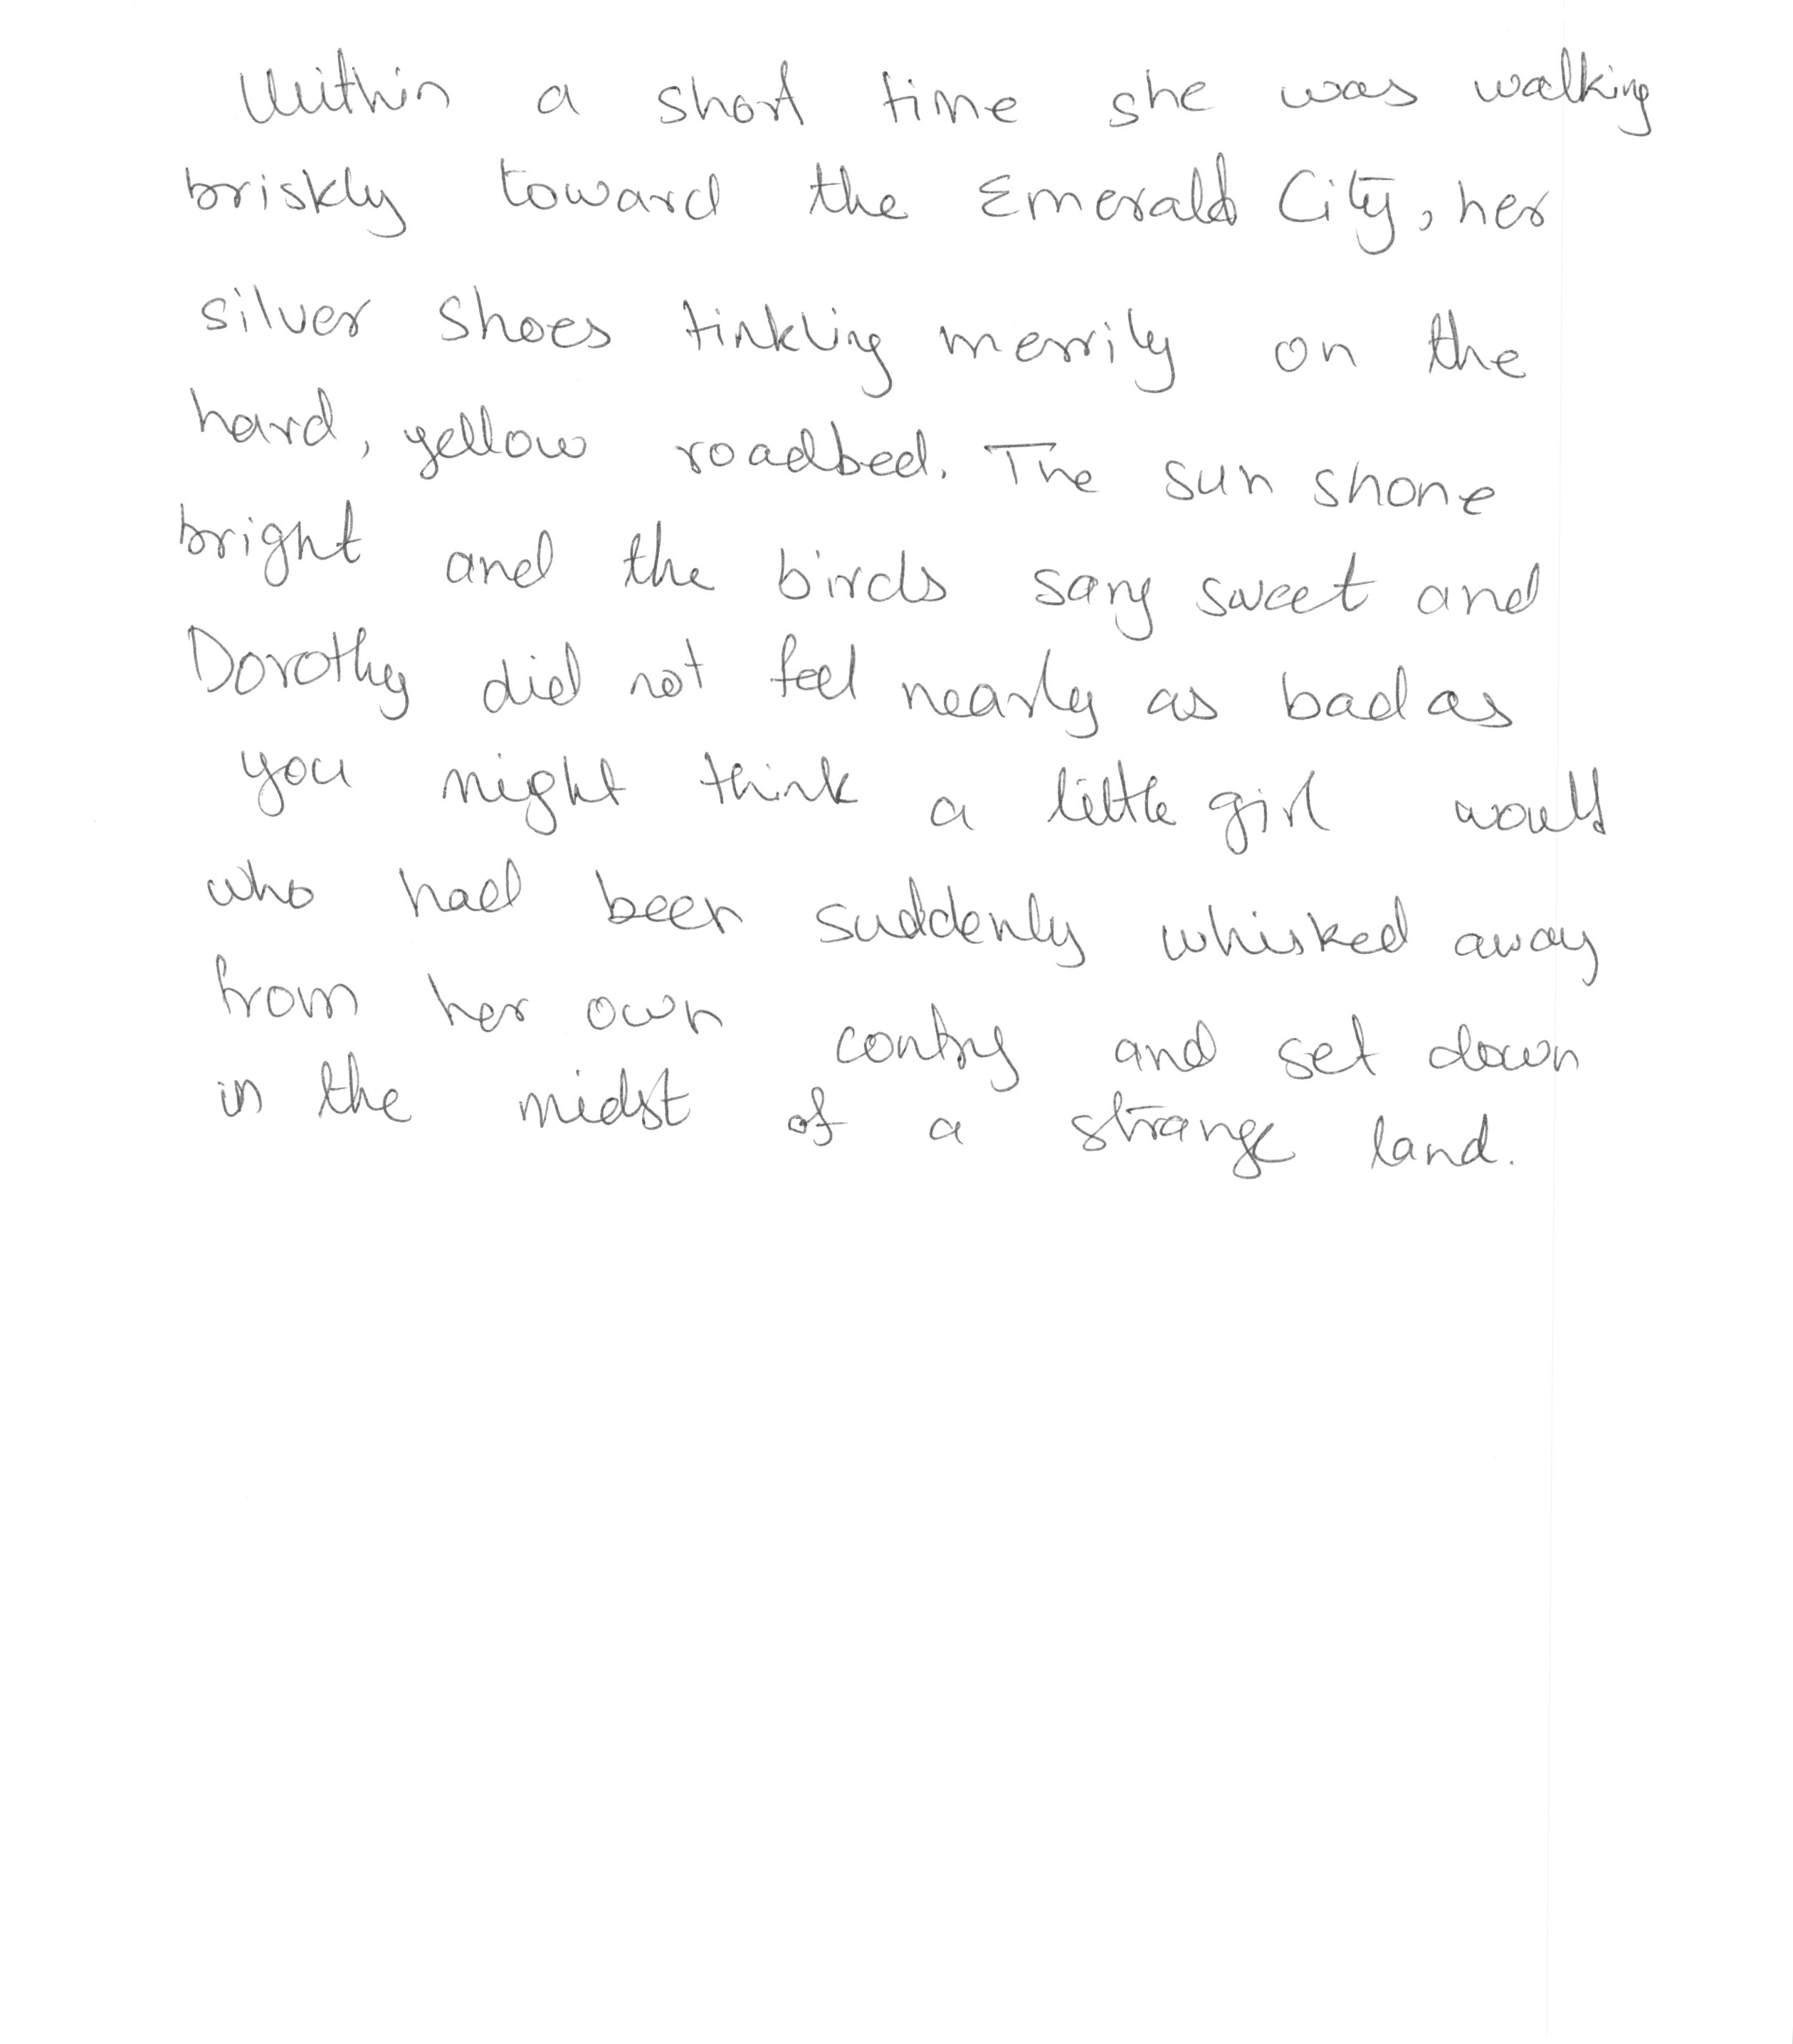 Within a short time she was walking
briskly toward the Emerald City, her
silver shoes tinkling merrily on the
hard, yellow roadbed. The sun shone
bright and the birds sang sweet and
Dorothy did not feel nearly as bad as
you might think a little girl would
who had been suddenly whisked away
from her own contry and set down
in the midst of a strange land.